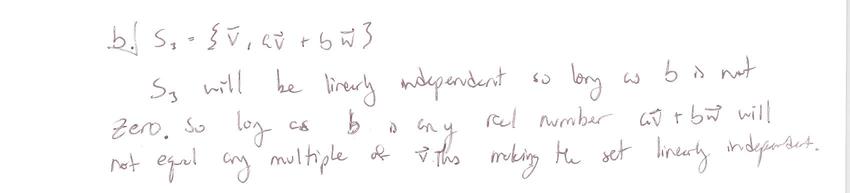 b. S₃ = {v⃗, av⃗ + bw⃗}
S₃ will be linearly independent so long as b is not
zero. So long as b is any real number av⃗ + bw⃗ will
not equal any multiple of v⃗ this making the set linearly independent.